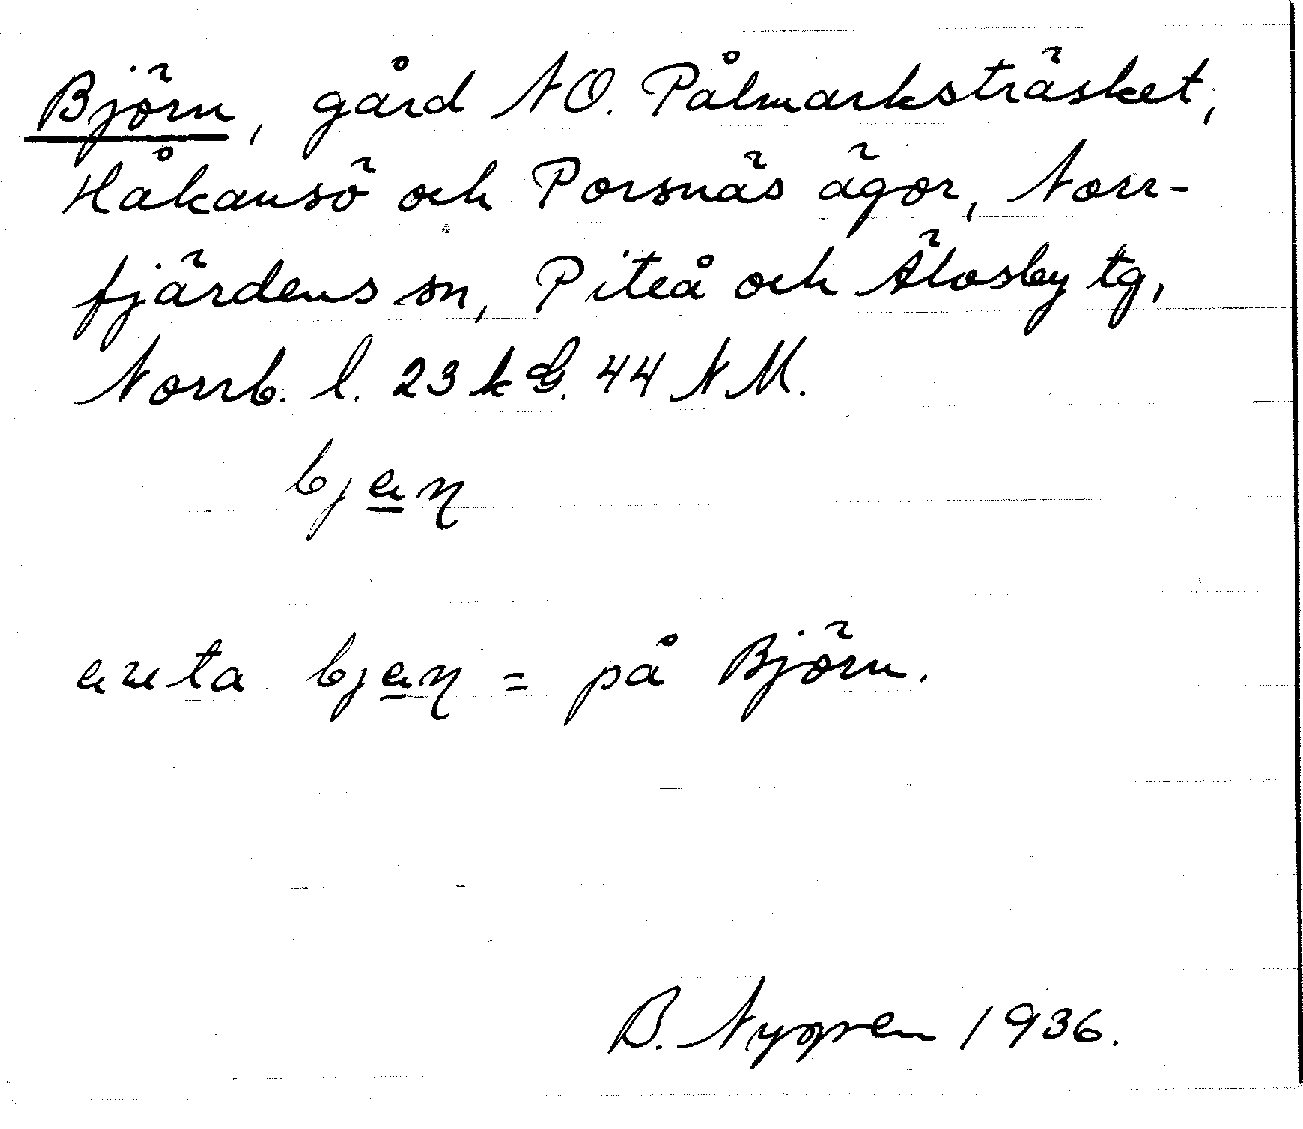 Björn, gård NO. Pålmarksträsket,
Håkansö och Porsnäs ägor, Norr-
fjärdens sn, Piteå och Älvsby tg,
Norrb. l. 23 k G. 44 NM.
bjan
auta bjan = på Björn.
B. Nygren 1936.